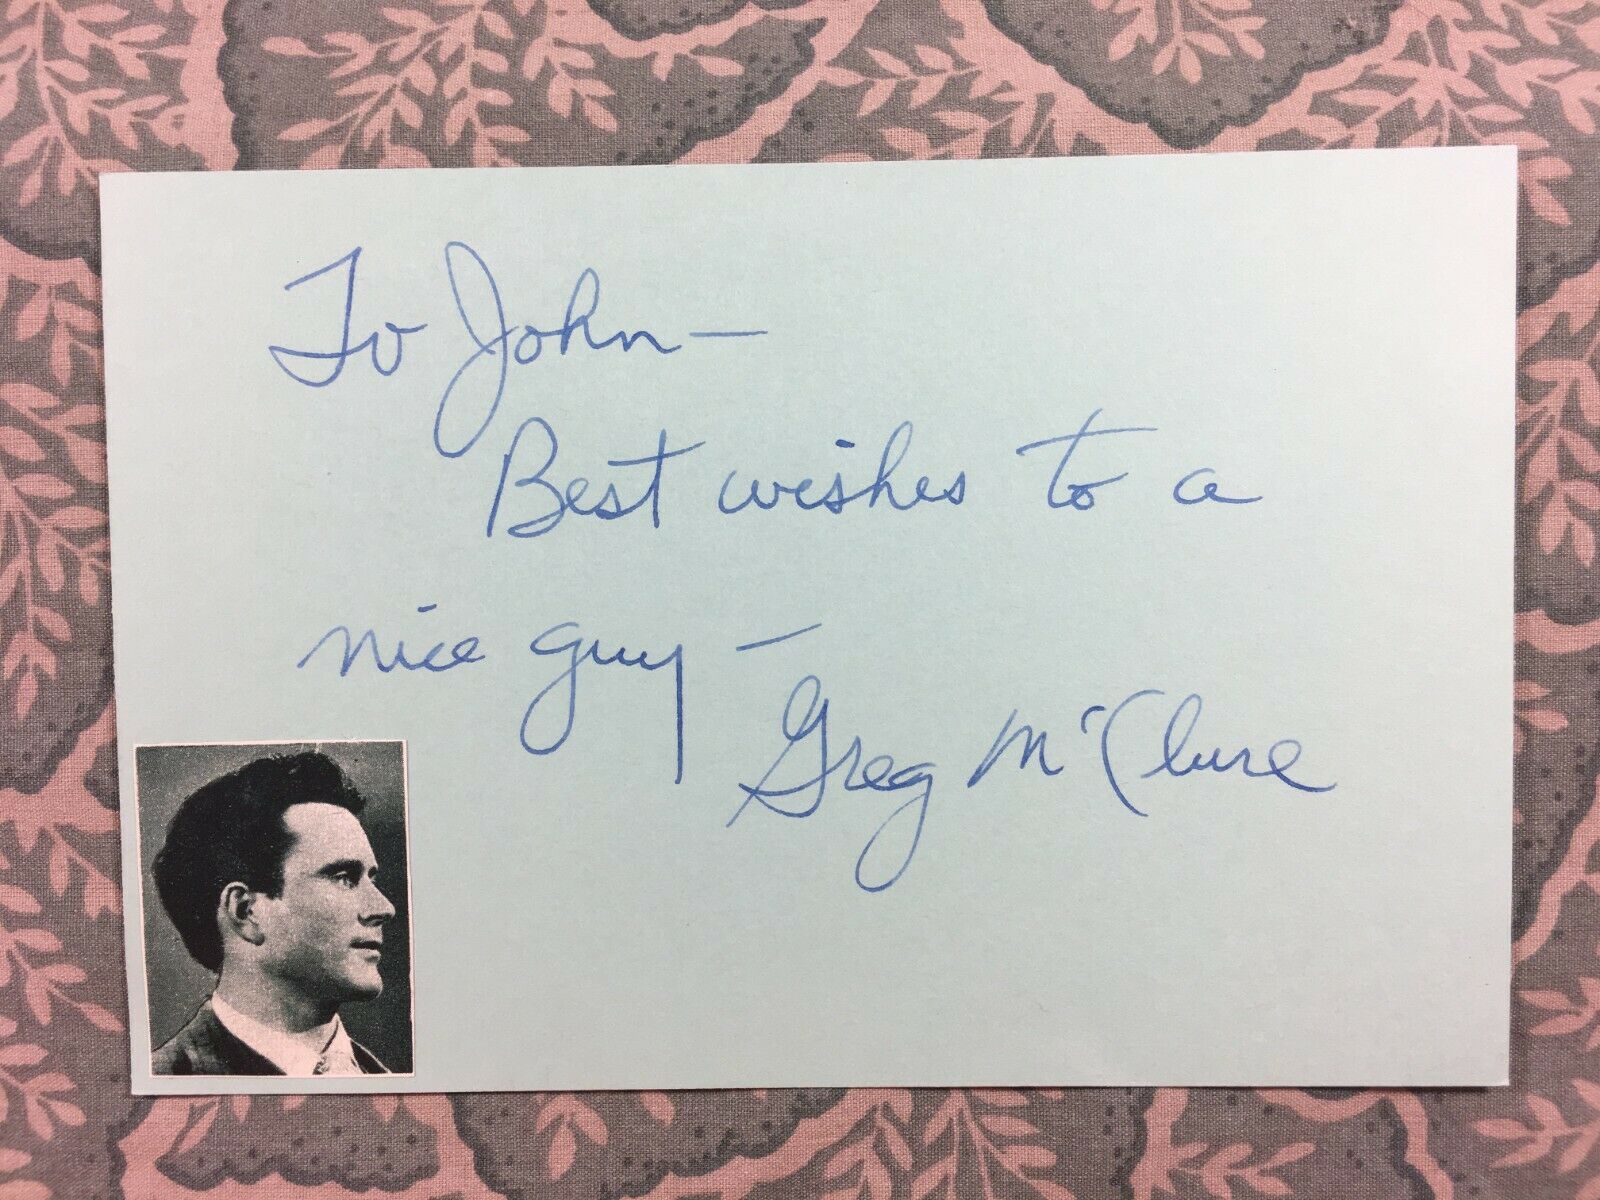 To John—
Best wishes to a
nice guy—
Greg McClure